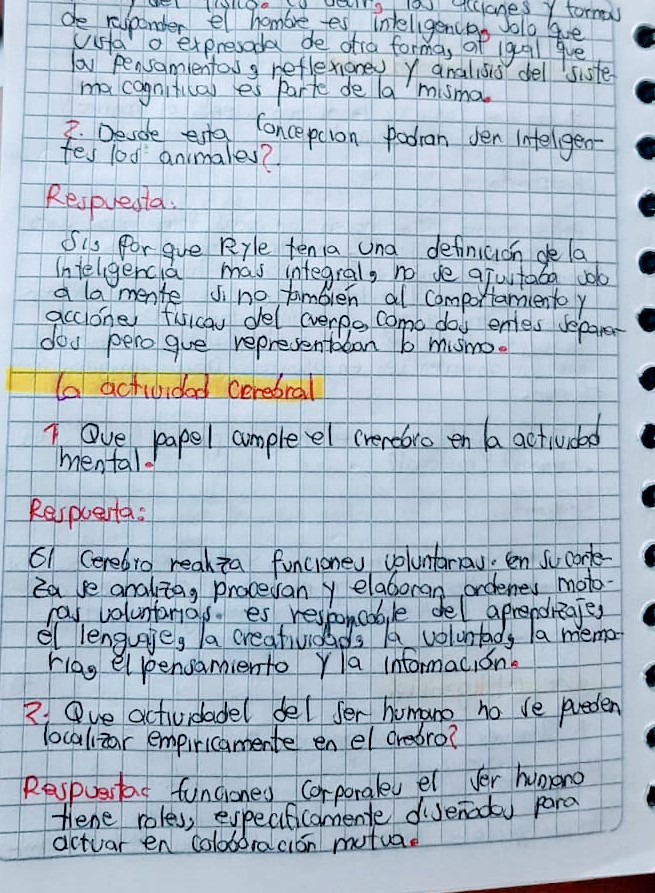 del físico es decir, las acciones y formas
de responder el hombre es inteligencia, solo que
vista o expresada de otra formas, al igual que
los pensamientos, reflexiones y analisis del siste-
ma cognitivas es parte de la misma.
2. Desde esta Concepcion podran ser inteligen-
tes los animales?
Respuesta.
Sis por que Ryle tenia una definición de la
inteligencia mas integral, no se ajustaba solo
a la mente si no también al comportamiento y
acciónes físicas del cuerpo, como dos entes separa-
dos pero que representaban lo mismo.
la actividad cerebral
1 Que papel cumple el crerebro en la actividad
mental.
Respuesta:
El Cerebro realiza funciones voluntarias. en su corte-
za se analiza, procesan y elaboran ordenes moto-
ras voluntarias. es responcable del aprendizaje,
el lenguaje, la creatividad, la voluntad, la memo-
ria, el pensamiento y la información.
2. Que actividadel del ser humano no se pueden
localizar empiricamente en el crebro?
Respuesta: funciones corporales el ser humano
tiene roles, especificamente diseñados para
actuar en colaboración mutua.